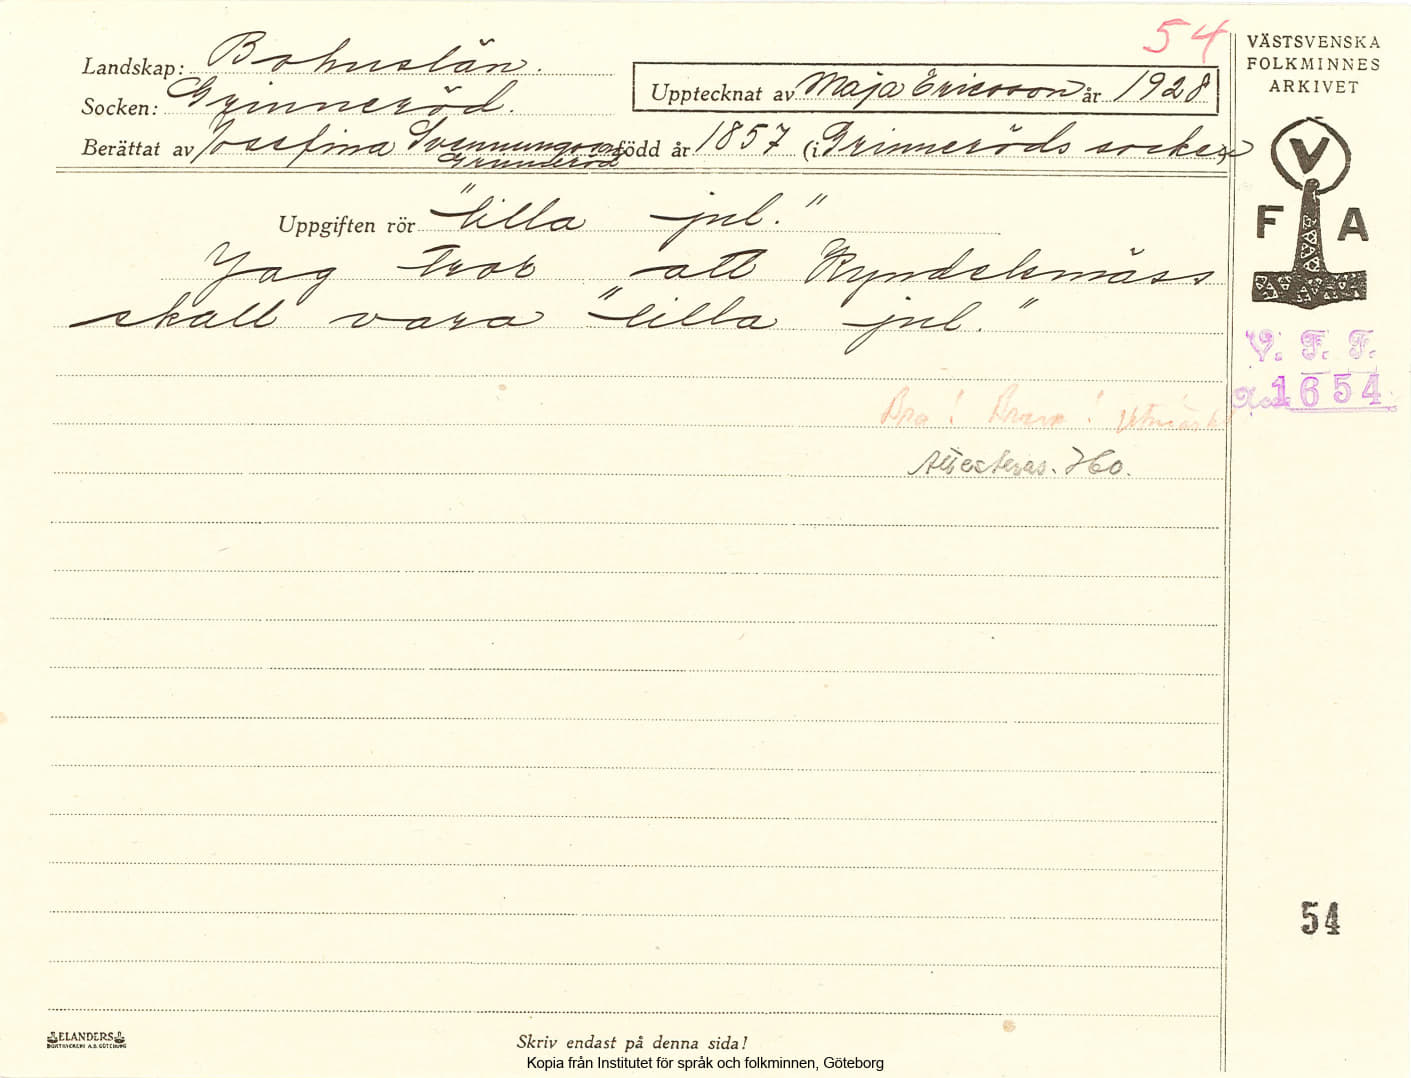 54
Landskap: Bohuslän.
Socken: Grinneröd.
Upptecknat av Maja Ericsson år 1928
Berättat av Josefina Svennungsson född år 1857 (i Grinneröds socken)
Grunneröd
Uppgiften rör "lilla jul."
Jag tror att Kyndelsmäss
skall vara "lilla jul."
Bra! Bravo! Utmärkt
Attesteras. Ho.
VÄSTSVENSKA
FOLKMINNES
ARKIVET
V
F A
V. F. F.
Acc. 1654
54
ELANDERS
BOKTRYCKERI A.B. GÖTEBORG
Skriv endast på denna sida!
Kopia från Institutet för språk och folkminnen, Göteborg